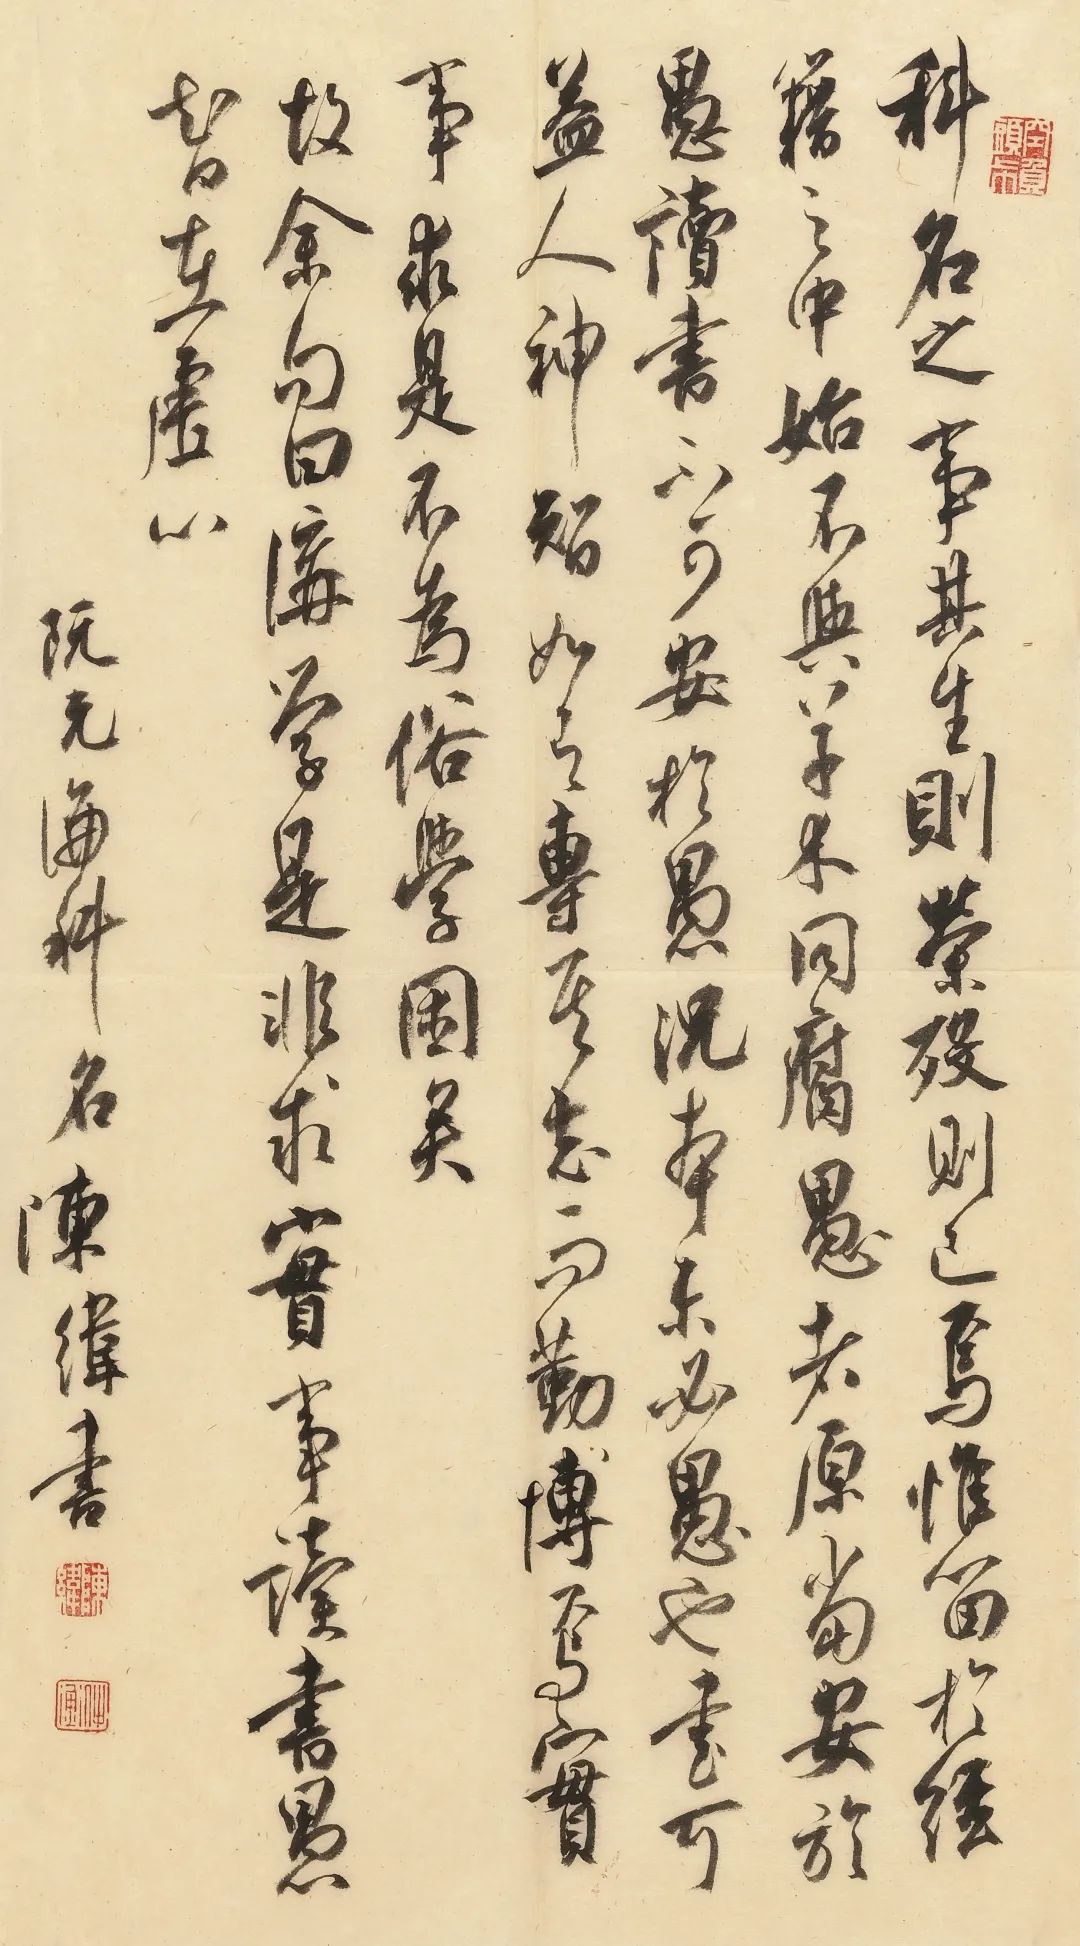 科名之事其生則榮殁則已焉惟留於經
籍之中始不與草木同腐愚者原當安於
愚讀書不可安於愚況本未必愚也書可
益人神智如言專其志而勤博焉實
事求是不為俗學囿矣
故余自曰講学是非求實事讀書愚
智在虛心
阮元論科名陳緯书
陳緯